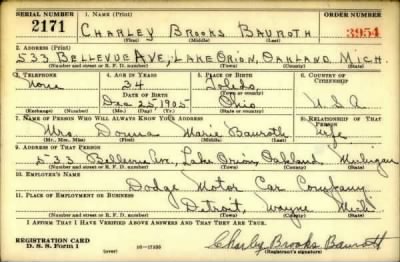 SERIAL NUMBER 1. NAME (Print) ORDER NUMBER
2171 CHARLEY BROOKS BAUROTH 3954
(First) (Middle) (Last)
2. ADDRESS (Print)
533 BELLEVUE AVE, LAKE ORION, OAKLAND, MICH.
(Number and street or R. F. D. number) (Town) (County) (State)
3. TELEPHONE 4. AGE IN YEARS 5. PLACE OF BIRTH 6. COUNTRY OF CITIZENSHIP
None 34 Toledo
DATE OF BIRTH (Town or county)
Dec 25 1905 Ohio U.S.A
(Exchange) (Number) (Mo.) (Day) (Yr.) (State or country)
7. NAME OF PERSON WHO WILL ALWAYS KNOW YOUR ADDRESS 8. RELATIONSHIP OF THAT PERSON
Mrs. Donna Marie Bauroth Wife
(Mr., Mrs., Miss) (First) (Middle) (Last)
9. ADDRESS OF THAT PERSON
533 Bellevue Ave, Lake Orion, Oakland Michigan
(Number and street or R. F. D. number) (Town) (County) (State)
10. EMPLOYER'S NAME
Dodge Motor Car Company
11. PLACE OF EMPLOYMENT OR BUSINESS
Detroit, Wayne Mich
(Number and street or R. F. D. number) (Town) (County) (State)
I AFFIRM THAT I HAVE VERIFIED ABOVE ANSWERS AND THAT THEY ARE TRUE.
REGISTRATION CARD
D. S. S. Form 1 (over) Charley Brooks Bauroth
(Registrant's signature)